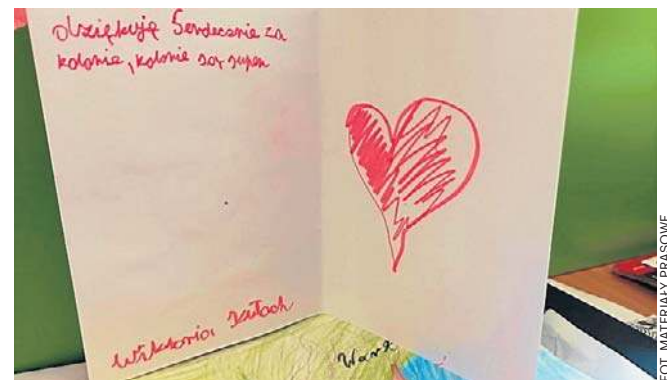 dziękuję Serdecznie za
kolonie, kolonie są super
Wiktoria
FOT. MATERIAŁY PRASOWE